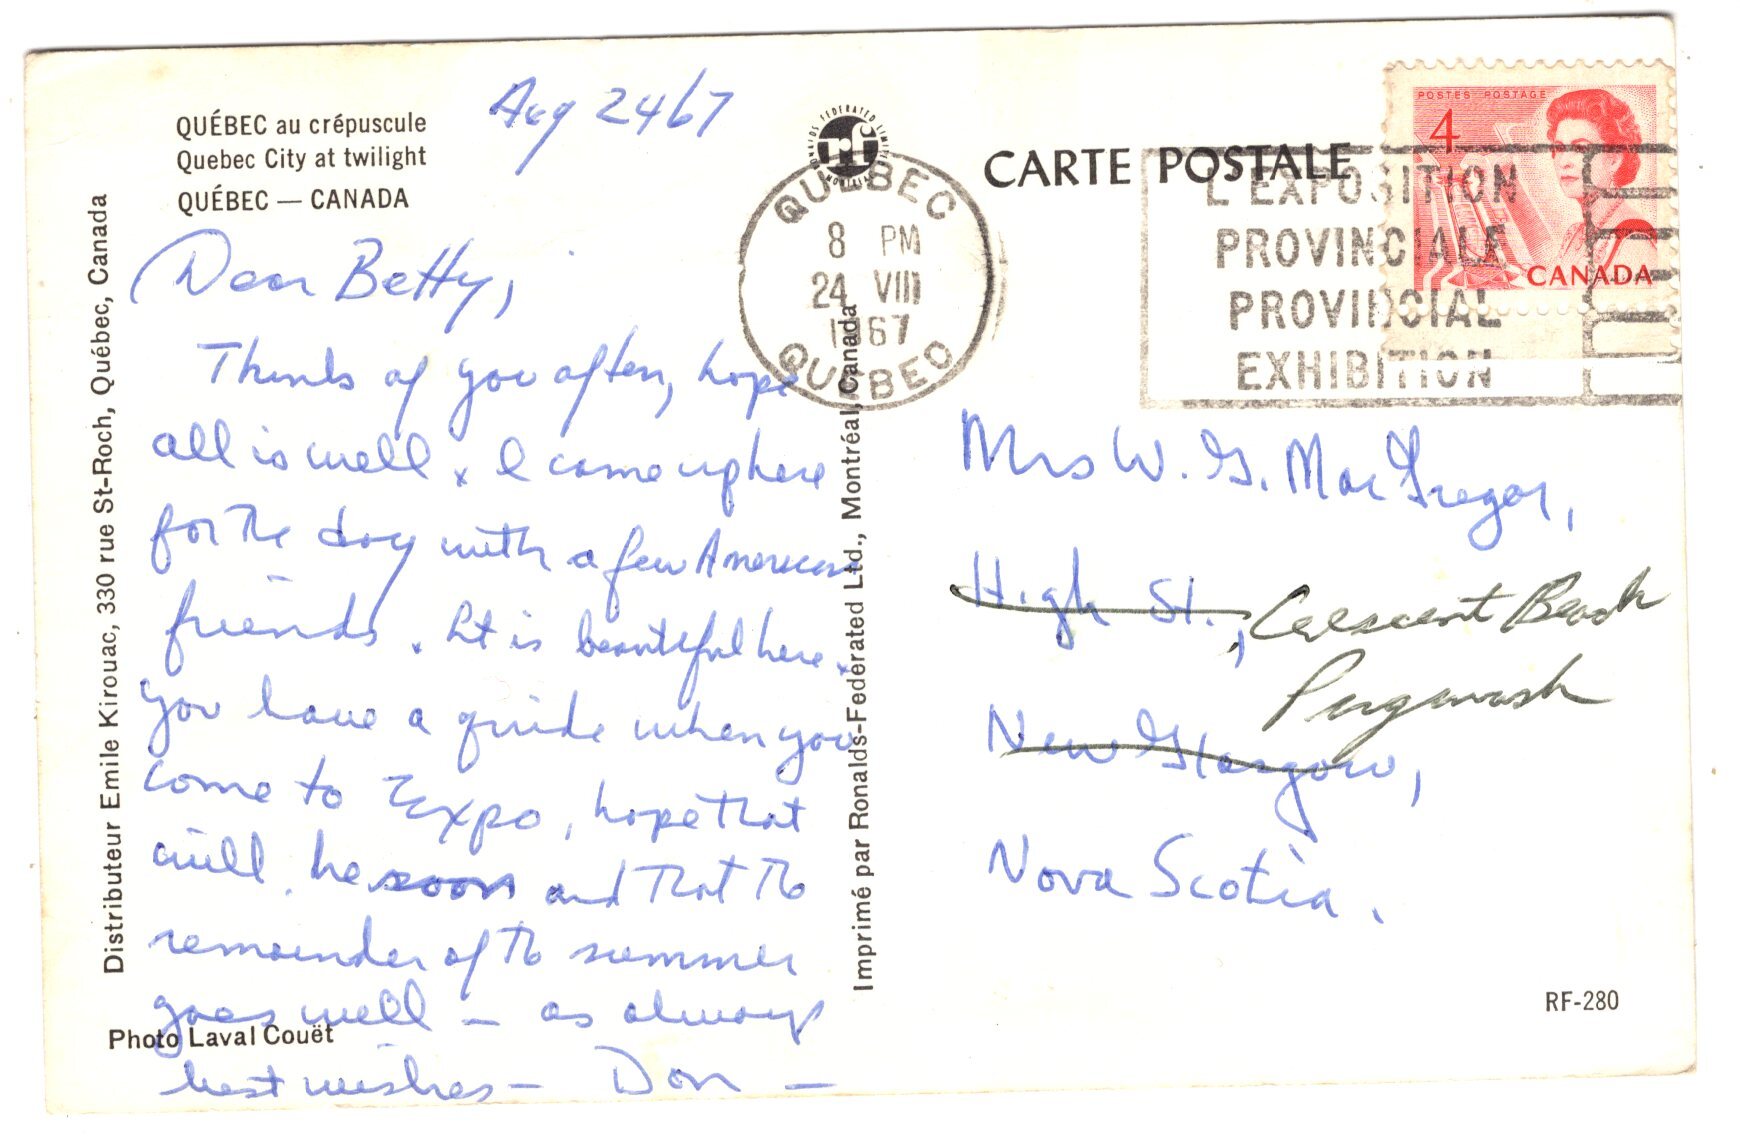 QUÉBEC au crépuscule
Quebec City at twilight
QUÉBEC — CANADA
Aug 24/67
Dear Betty,
Thinks of you often, hope
all is well. I came up here
for the day with a few American
friends. It is beautiful here.
You have a guide when you
come to Expo, hope that
will be soon and that the
remainder of the summer
goes well — as always
best wishes — Don —
Photo Laval Couët
Distributeur Emile Kirouac, 330 rue St-Roch, Québec, Canada
Imprimé par Ronalds-Federated Ltd., Montréal, Canada
RONALDS FEDERATED LIMITED
MONTREAL
rf
CARTE POSTALE
QUÉBEC
8 PM
24 VIII
1967
QUÉBEC
L'EXPOSITION
PROVINCIALE
PROVINCIAL
EXHIBITION
POSTES POSTAGE
4
CANADA
Mrs W. G. MacGregor,
High St., Crescent Beach
Pugwash
New Glasgow,
Nova Scotia.
RF-280